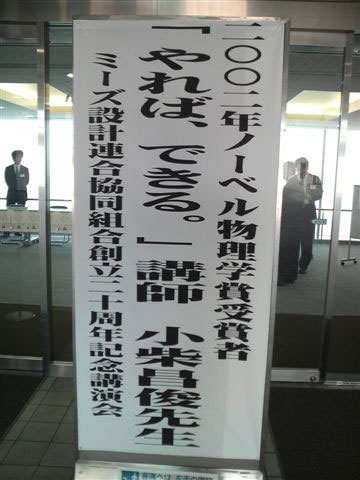 二〇〇二年ノーベル物理学賞受賞者
「やれば、できる。」講師 小柴昌俊先生
ミーズ設計連合協同組合創立二十周年記念講演会